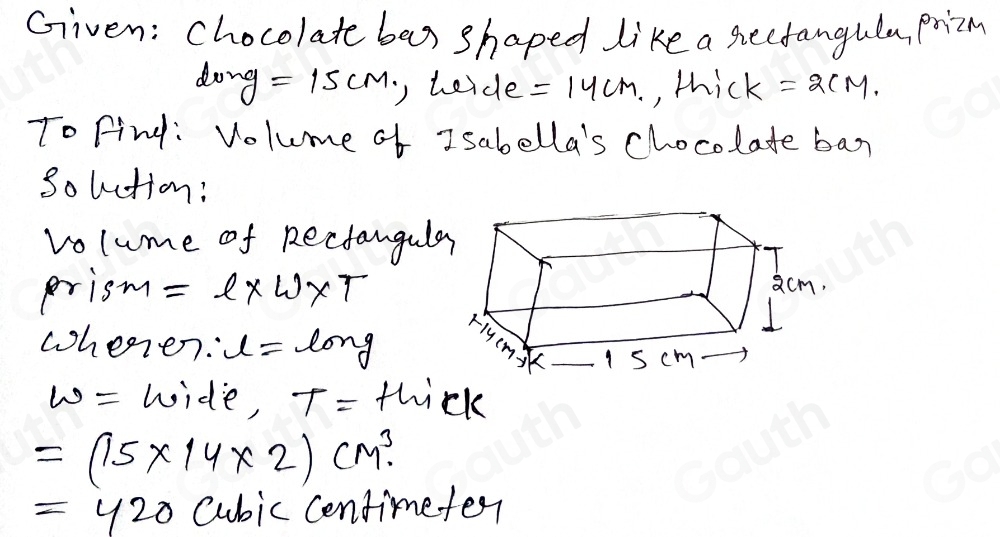 Given: Chocolate bar shaped like a rectangular prizm
long = 15 cm., wide = 14 cm., thick = 2 cm.
To find: Volume of Isabella's Chocolate bar
Solution:
Volume of Rectangular
prism = l × W × T
where: l = long
w = wide, T = thick
= (15 × 14 × 2) cm³.
= 420 Cubic Centimeter
2cm.
14 cm
15 cm
Gauth